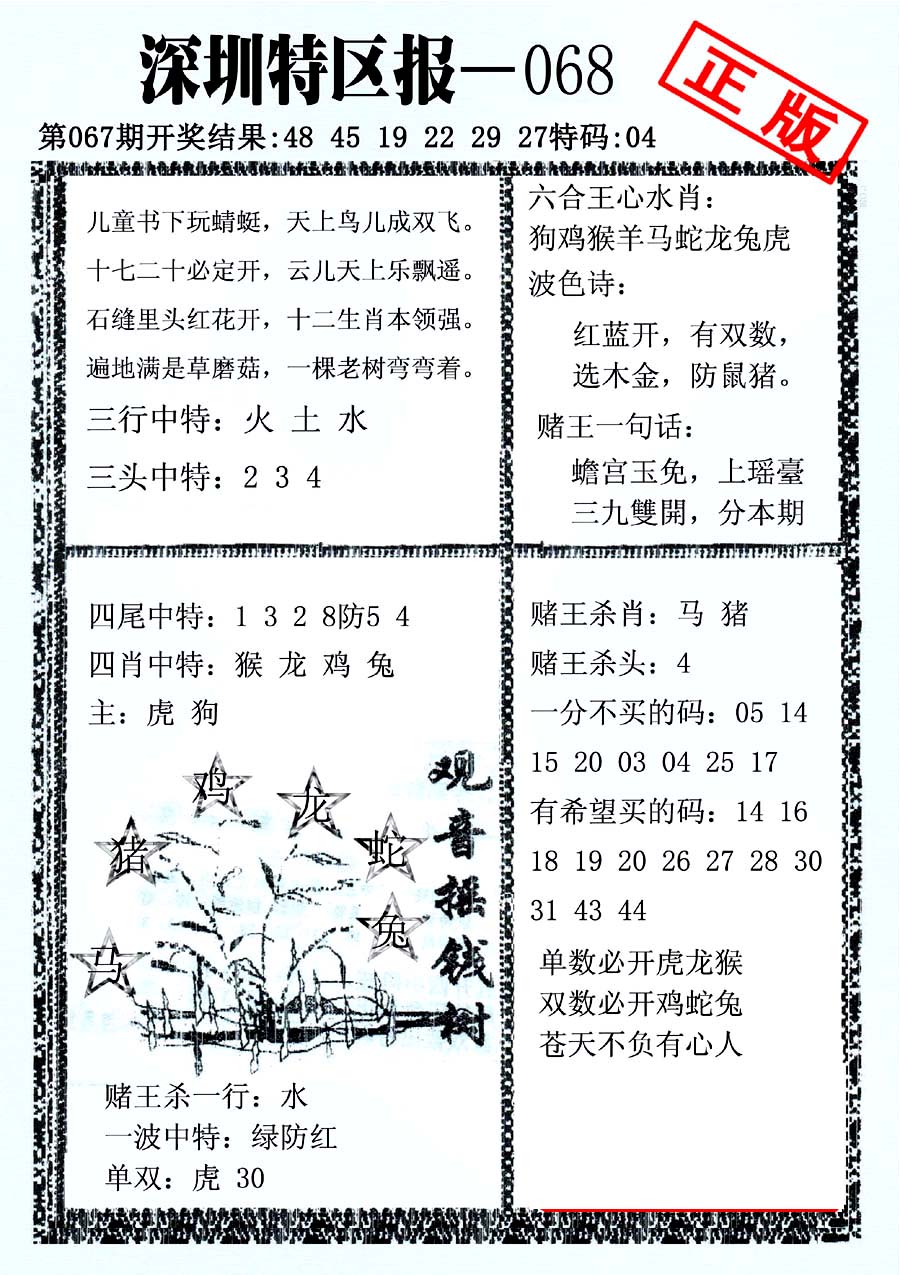 深圳特区报—068
正版
第067期开奖结果:48 45 19 22 29 27特码:04
儿童书下玩蜻蜓，天上鸟儿成双飞。
十七二十必定开，云儿天上乐飘遥。
石缝里头红花开，十二生肖本领强。
遍地满是草磨菇，一棵老树弯弯着。
三行中特：火 土 水
三头中特：2 3 4
六合王心水肖：
狗鸡猴羊马蛇龙兔虎
波色诗：
红蓝开，有双数，
选木金，防鼠猪。
赌王一句话：
蟾宫玉免，上瑶臺
三九雙開，分本期
四尾中特：1 3 2 8防5 4
四肖中特：猴 龙 鸡 兔
主：虎 狗
鸡
龙
猪
蛇
兔
马
观音摇钱树
赌王杀一行：水
一波中特：绿防红
单双：虎 30
赌王杀肖：马 猪
赌王杀头：4
一分不买的码：05 14
15 20 03 04 25 17
有希望买的码：14 16
18 19 20 26 27 28 30
31 43 44
单数必开虎龙猴
双数必开鸡蛇兔
苍天不负有心人